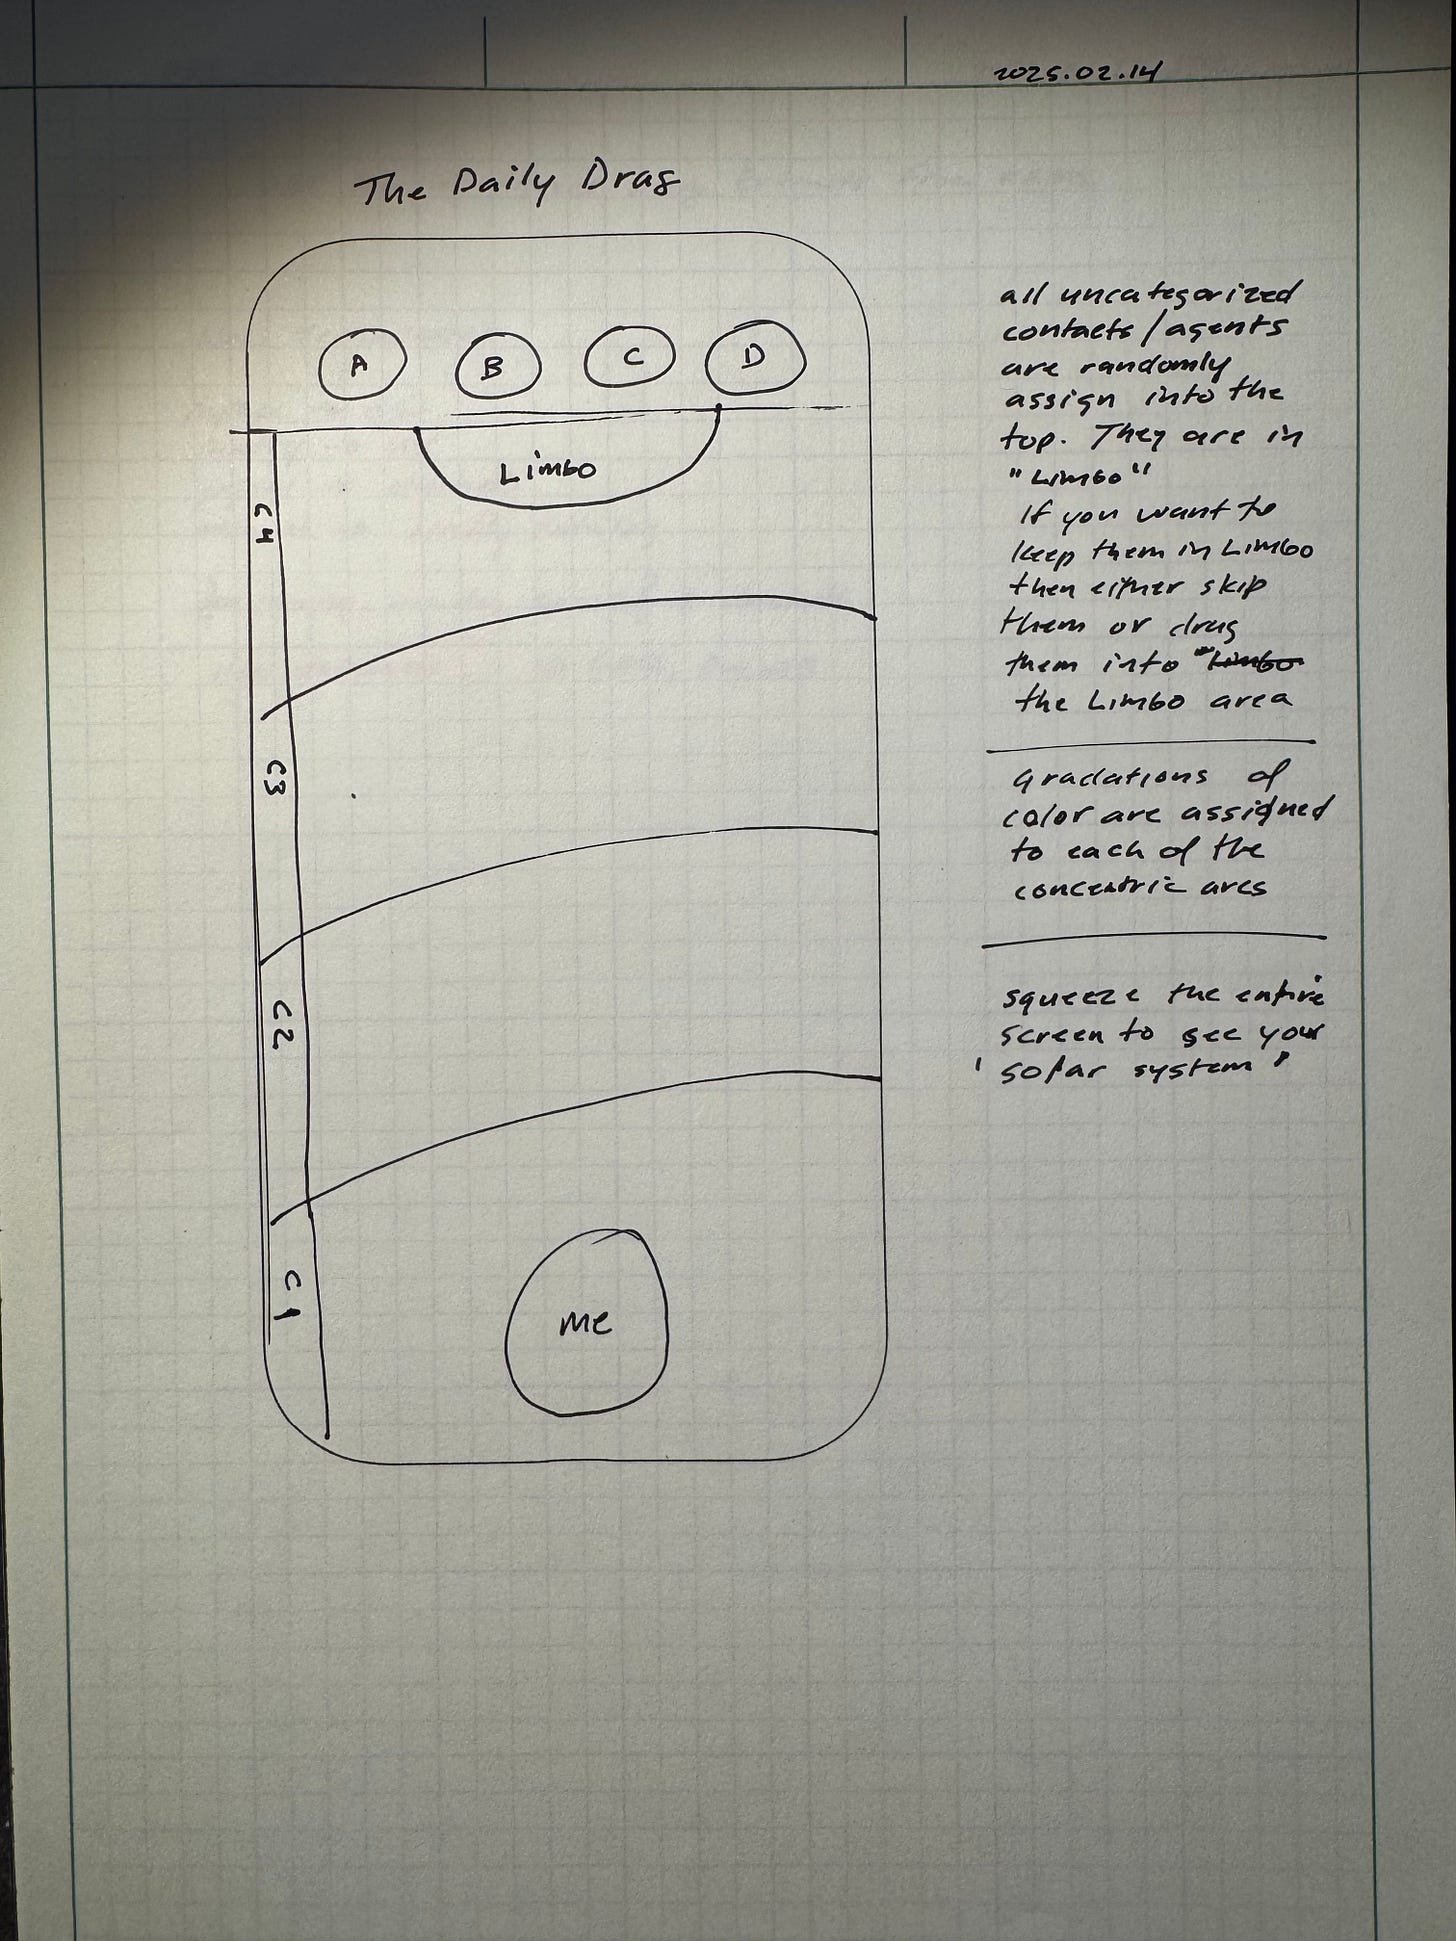 2025.02.14
The Daily Drag
A B C D
Limbo
C4
C3
C2
C1
me
all uncategorized
contacts/agents
are randomly
assign into the
top. They are in
"Limbo"
If you want to
keep them in Limbo
then either skip
them or drag
them into "Limbo
the Limbo area
Gradations of
color are assigned
to each of the
concentric arcs
squeeze the entire
screen to see your
'solar system'